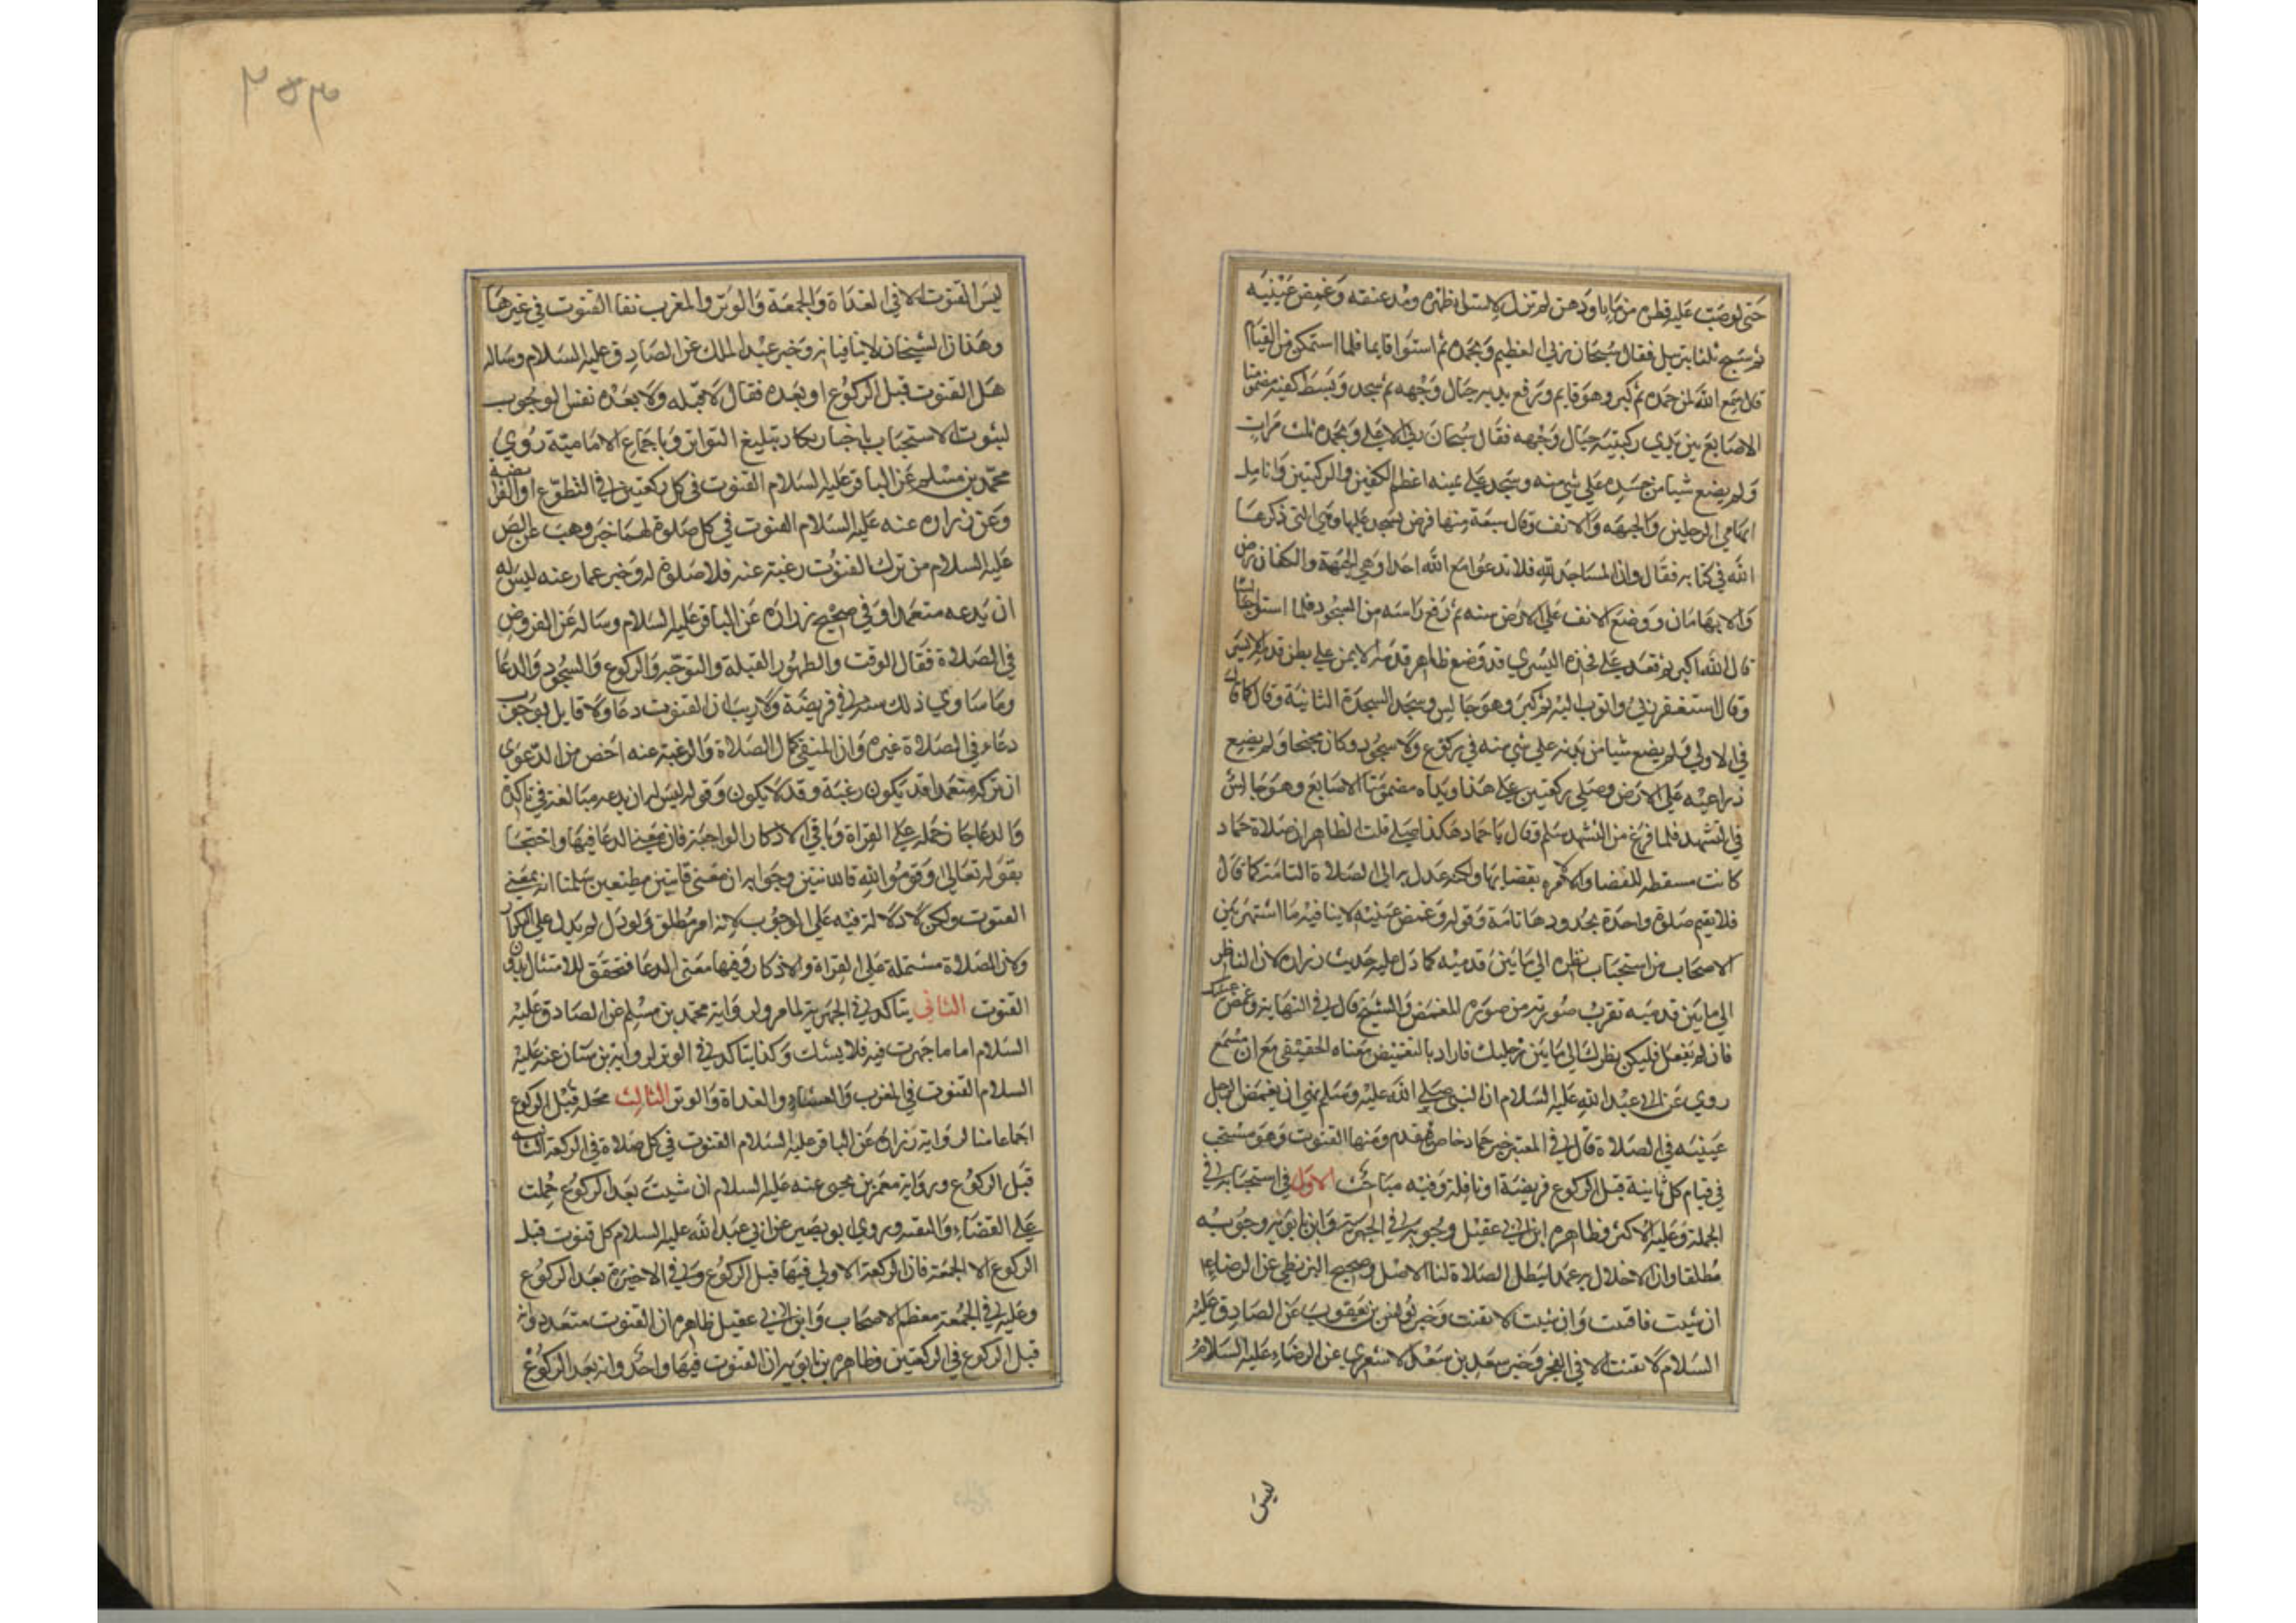 حتى لو صب عليه قطرة من ماء او دهن لم تزل لاستواء ظهره ومد عنقه وغمض عينيه
ثم سبح ثلثا بترتيل فقال سبحان ربي العظيم وبحمده ثم استوا قايما فلما استمكن من القيام
قال سمع الله لمن حمده ثم كبر وهو قايم ورفع يديه حيال وجهه ثم سجد وبسط كفيه مضمومتا
الاصابع بين يدي ركبتيه حيال وجهه فقال سبحان ربي الاعلى وبحمده ثلث مرات
ولم يضع شيا من جسده علي شي منه وسجد علي ثمنيه اعظم الكفين والركبتين وانامل
ابهامي الرجلين والجبهه والانف وقال سبعة منها فرض يسجد عليها وهي التي ذكرها
الله في كتابه فقال وان المساجد لله فلا تدعوا مع الله احدا وهي الجبهة والكفان
والابهامان ووضع الانف علي الارض سنه ثم رفع راسه من السجود فلما استوا جالسا
قال الله اكبر ثم قعد علي فخذه اليسري قد وضع ظاهر قدمه الايمن علي بطن قدمه الايسر
وقال استغفر ربي واتوب اليه ثم كبر وهو جالس وسجد السجدة الثانية وقال كما قال
في الاولي ولم يضع شيا من بدنه علي شي منه في ركوع ولا سجود وكان مجنحا ولم يضع
ذراعيه علي الارض وصلي ركعتين علي هذا ويداه مضمومتا الاصابع وهو جالس
في التشهد فلما فرغ من التشهد سلم وقال يا حماد هكذا صل قلت الظاهر ان صلاة حماد
كانت مسقطه للقضا والا لامره بقضايها ولكنه عدل به الى الصلاة التامة كما قال
فلا يقيم صلوة واحدة بحدودها تامة وقوله وغمض عينيه لا ينافيه ما اشتهر بين
الاصحاب من استحباب نظره الي ما بين قدميه كما دل عليه حديث زراره لان الناظر
الي ما بين قدميه تقرب صورته من صورة المغمض والشيخ قال في النهاية وغمض عينيك
فان لم تفعل فليكن نظرك الي ما بين رجليك فاراد بالتغميض معناه الحقيقي مع ان مسمع
روي عن ابي عبد الله عليه السلام ان النبي صلي الله عليه وسلم نهي ان يغمض الرجل
عينيه في الصلاة قال في المعتبر خبر حماد خاص فيقدم ومنها القنوت وهو مستحب
في قيام كل ثانية قبل الركوع فريضة او نافلة وفيه مباحث الاول في استحبابه في
الجملة وعليه الاكثر وظاهر ابن ابي عقيل وجوبه في الجهرية وابن بابويه وجوبه
مطلقا وان الاخلال به عمدا يبطل الصلاة لنا الاصل وصحيح البزنطي عن الرضاء
ان شيت فاقنت وان شيت لا تقنت وخبر يونس بن يعقوب عن الصادق عليه
السلام لا تقنت الا في الفجر وخبر سعد بن سعد الاشعري عن الرضاء عليه السلام
ليس
٢٥٣
ليس القنوت الا في الغداة والجمعة والوتر والمغرب نفا القنوت في غيرها
وهذان الشيخان لا ينافيانه وخبر عبد الملك عن الصادق عليه السلام وساله
هل القنوت قبل الركوع او بعده فقال لا قبله ولا بعده نفس الوجوب
لثبوت الاستحباب باخبار يكاد تبليغ التواتر وباجماع الامامية روي
محمد بن مسلم عن الباقر عليه السلام القنوت في كل ركعتين في التطوع او الفريضه
وعن زراره عنه عليه السلام القنوت في كل صلوة لهما خبر وهب عن الصادق
عليه السلام من ترك القنوت رغبة عنه فلا صلوة له وخبر عمار عنه ليس له
ان يدعه متعمدا وفي صحيح زرارة عن الباقر عليه السلام وساله عن الفروض
في الصلاة فقال الوقت والطهور القبلة والتوجه والركوع والسجود والدعا
وما ساوي ذلك سنه في فريضة ولا ريب ان القنوت دعا ولا قايل بوجوب
دعاء في الصلاة غيره وان المنفي كمال الصلاة والرغبة عنه اخص من الدعوى
ان تركه متعمدا قد يكون رغبة وقد لا يكون وقوله ليس له ان يدعه مبالغة في تاكده
والدعا جاز حمله علي القراة وباقي الاذكار الواجبة فان معني الدعا فيها واحتجا
بقوله تعالى وقوموا لله قانتين وجوابه ان معنى قانتين مطيعين سلمنا انه بمعني
القنوت ولكن لا دلالة فيه علي الوجوب لانه امر مطلق ولو دل لم يدل علي التكرار
ولان الصلاة مشتملة علي القراة والاذكار وفيها معنى الدعا فتحقق الامتثال بدون
القنوت الثاني يتاكد في الجهرية لما مر ولرواية محمد بن مسلم عن الصادق عليه
السلام اما ما جهرت فيه فلا يشك وكذا يتاكد في الوتر لرواية بن سنان عنه عليه
السلام القنوت في المغرب والعشاء والغداة والوتر الثالث محله قبل الركوع
اجماعا منا لرواية زرارة عن الباقر عليه السلام القنوت في كل صلاة في الركعة الثانيه
قبل الركوع ورواية معمر بن يحيى عنه عليه السلام ان شيت بعد الركوع حملت
علي القضاء والتقية وروي ابو بصير عن ابي عبد الله عليه السلام كل قنوت قبل
الركوع الا الجمعة فان الركعة الاولي فيها قبل الركوع وفي الاخيرة بعد الركوع
وعليه في الجمعة معظم الاصحاب وابن ابي عقيل ظاهره ان القنوت متعدد وانه
قبل الركوع في الركعتين وظاهره بن بابويه ان القنوت فيها واحد وانه بعد الركوع